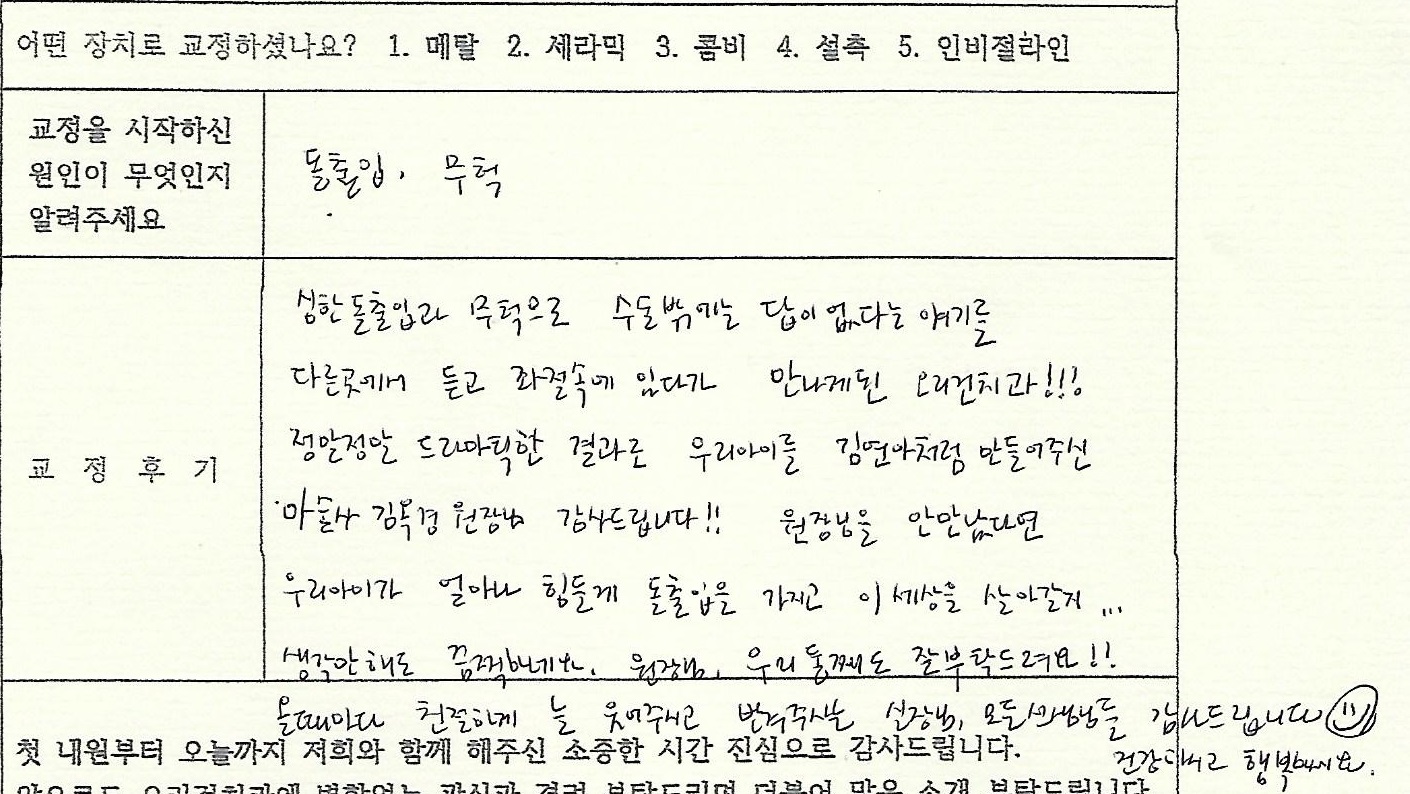 어떤 장치로 교정하셨나요? 1. 메탈 2. 세라믹 3. 콤비 4. 설측 5. 인비절라인
교정을 시작하신
원인이 무엇인지
알려주세요
돌출입, 무턱
심한돌출입과 무턱으로 수술밖에는 답이 없다는 얘기를
다른곳에서 듣고 좌절속에 있다가 만나게된 오리건치과!!!
정말정말 드라마틱한 결과로 우리아이를 김연아처럼 만들어주신
교 정 후 기
마술사 김옥경 원장님 감사드립니다!! 원장님을 안만났다면
우리아이가 얼마나 힘들게 돌출입을 가지고 이 세상을 살아갈지 ...
생각만해도 끔찍하네요. 원장님, 우리 둘째도 잘부탁드려요!!
올때마다 친절하게 늘 웃어주시고 반겨주시는 실장님, 모든선생님들 감사드립니다
첫 내원부터 오늘까지 저희와 함께 해주신 소중한 시간 진심으로 감사드립니다.
건강하시고 행복하세요.
앞으로도 오리건치과에 변함없는 관심과 격려 부탁드리며 더불어 많은 소개 부탁드립니다